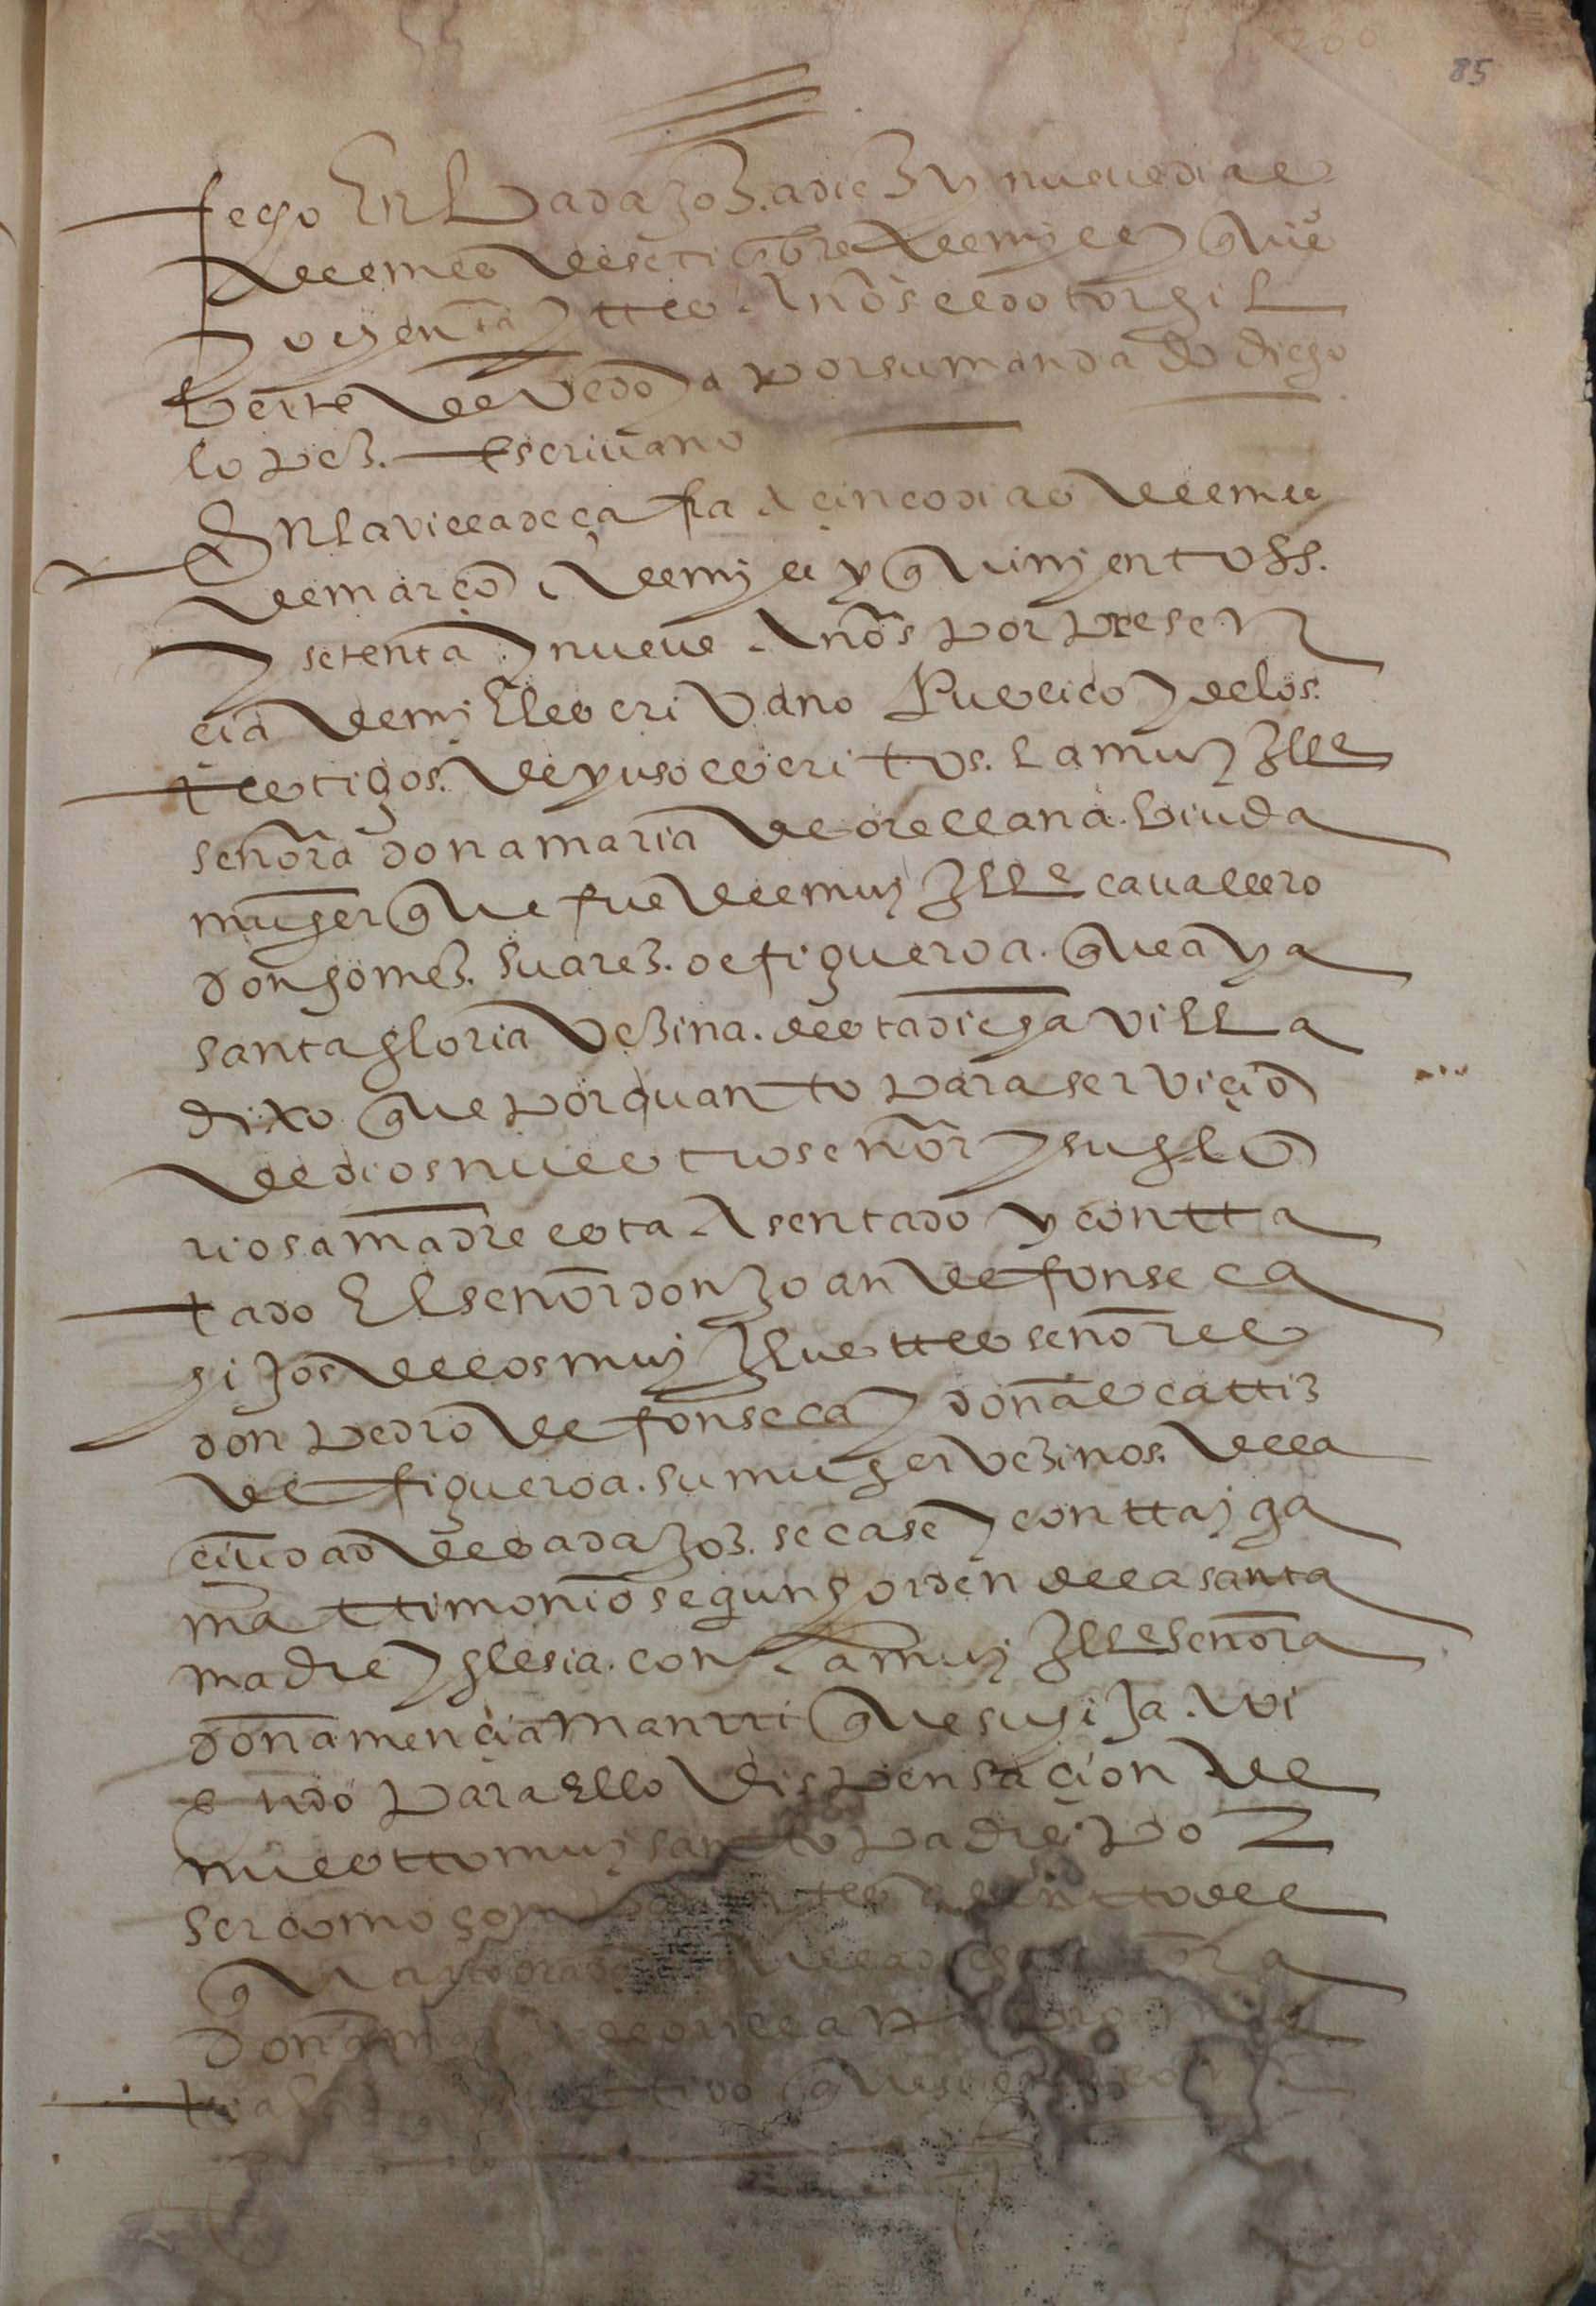 85
fecho En badajoz. a diez y nueue dias
del mes de setienbre de mil y quis
y ochenta y tres Años el dotor gil
berte de bedoya por su mandado diego
lopez. escriuano
En la villa de çafra A cinco dias del mes
de março de mil y quinientos
y setenta y nueue Años por presen
cia de mi El escrivano Publico y de los
testigos. de yuso escritos. la muy Ille
señora dona maria de orellana. biuda
muger que fue del muy Ille cauallero
don gomez. suarez. de figueroa. que aya
santa gloria vezina. desta dicha villa
dixo que por quanto para servicio
de dios nuestro señor y su glo
riosa madre esta Asentado y contra
tado El señor don Joan de fonseca
hijos de los muy Ilustres señores
don pedro de fonseca y doña beatriz
de figueroa. su muger vezinos. de la
ciudad de badajoz. se case y contrayga
matrimonio segun horden de la santa
madre yglesia. con La muy Ille señora
doña mencia manrrique su hija. tvi
endo para Ello dispensacion de
nuestro muy santo padre por
ser como son
quarto grado de la dicha señora
doña maria de orellana
que